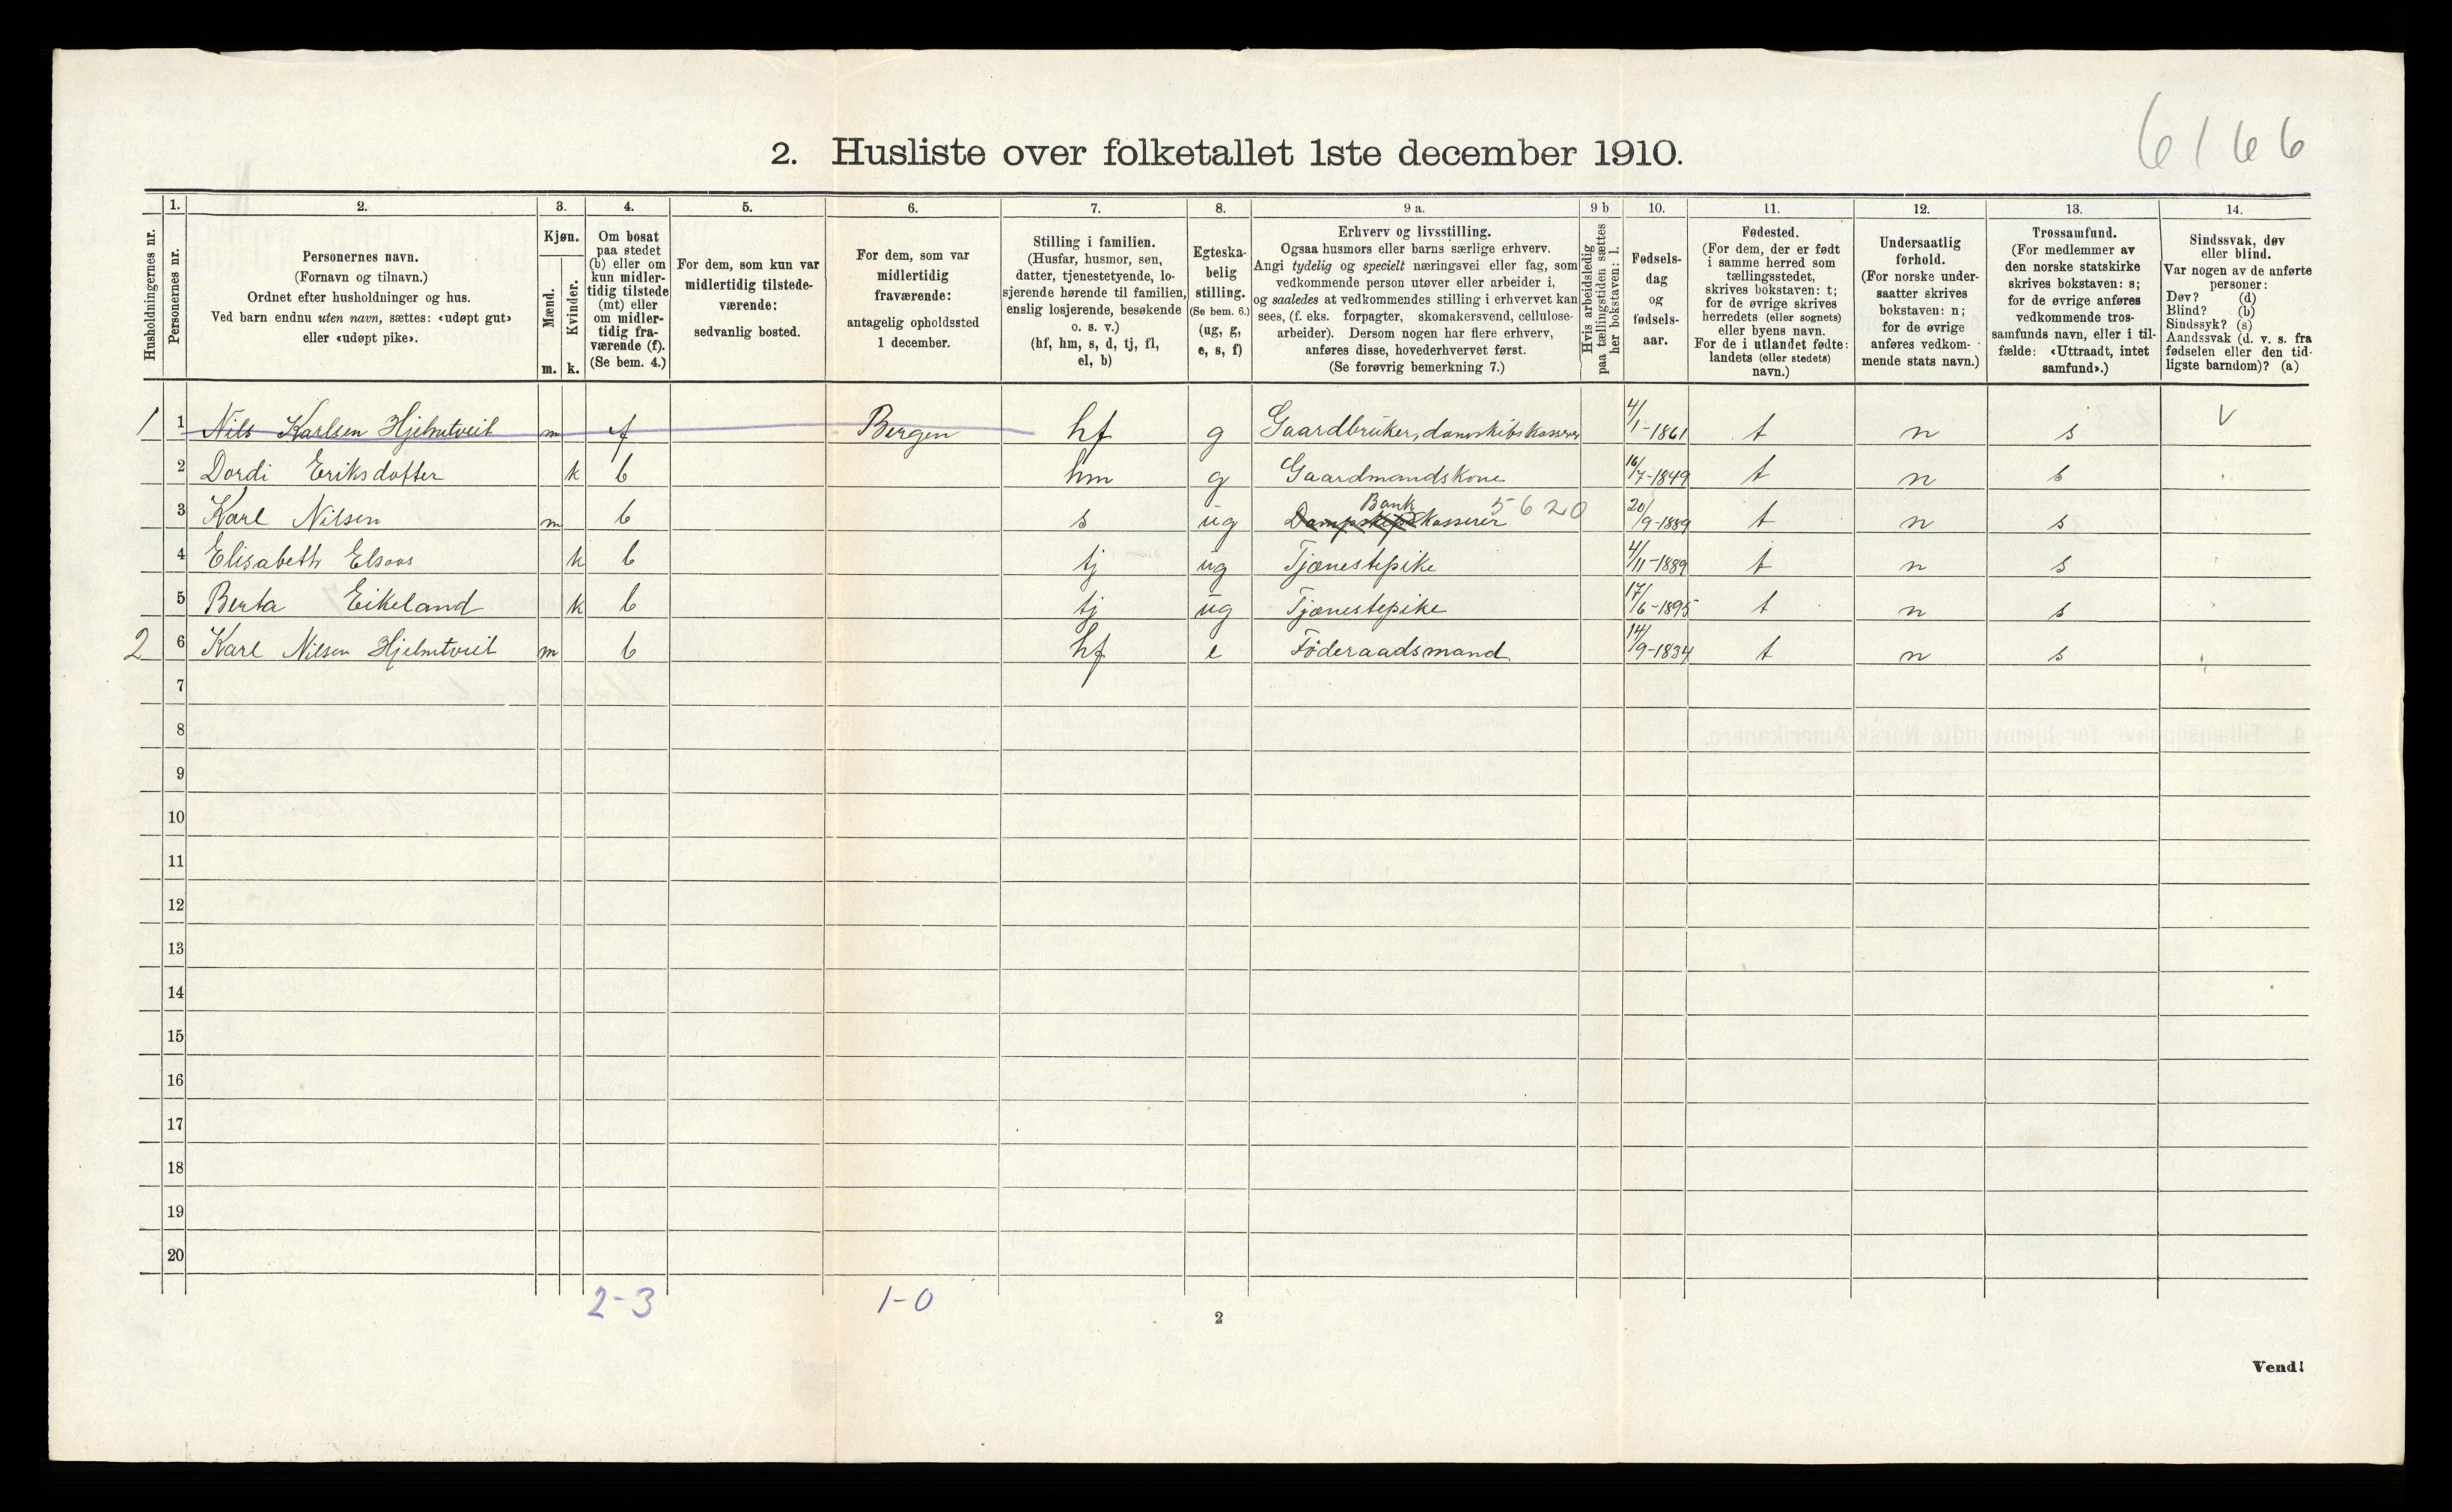 6166
2. Husliste over folketallet 1ste december 1910.
Husholdningernes nr.
1.
Personernes nr.
2.
Personernes navn.
(Fornavn og tilnavn.)
Ordnet efter husholdninger og hus.
Ved barn endnu uten navn, sættes: «udøpt gut»
eller «udøpt pike».
3.
Kjøn.
Mænd.
Kvinder.
m. k.
4.
Om bosat
paa stedet
(b) eller om
kun midler-
tidig tilstede
(mt) eller
om midler-
tidig fra-
værende (f).
(Se bem. 4.)
5.
For dem, som kun var
midlertidig tilstede-
værende:
sedvanlig bosted.
6.
For dem, som var
midlertidig
fraværende:
antagelig opholdssted
1 december.
7.
Stilling i familien.
(Husfar, husmor, søn,
datter, tjenestetyende, lo-
sjerende hørende til familien,
enslig losjerende, besøkende
o. s. v.)
(hf, hm, s, d, tj, fl,
el, b)
8.
Egteska-
belig
stilling.
(Se bem. 6.)
(ug, g,
e, s, f)
9 a.
Erhverv og livsstilling.
Ogsaa husmors eller barns særlige erhverv.
Angi tydelig og specielt næringsvei eller fag, som
vedkommende person utøver eller arbeider i,
og saaledes at vedkommendes stilling i erhvervet kan
sees, (f. eks. forpagter, skomakersvend, cellulose-
arbeider). Dersom nogen har flere erhverv,
anføres disse, hovederhvervet først.
(Se forøvrig bemerkning 7.)
9 b
Hvis arbeidsledig
paa tællingstiden sættes
her bokstaven: l.
10.
Fødsels-
dag
og
fødsels-
aar.
11.
Fødested.
(For dem, der er født
i samme herred som
tællingsstedet,
skrives bokstaven: t;
for de øvrige skrives
herredets (eller sognets)
eller byens navn.
For de i utlandet fødte:
landets (eller stedets)
navn.)
12.
Undersaatlig
forhold.
(For norske under-
saatter skrives
bokstaven: n;
for de øvrige
anføres vedkom-
mende stats navn.)
13.
Trossamfund.
(For medlemmer av
den norske statskirke
skrives bokstaven: s;
for de øvrige anføres
vedkommende tros-
samfunds navn, eller i til-
fælde: «Uttraadt, intet
samfund».)
14.
Sindssvak, døv
eller blind.
Var nogen av de anførte
personer:
Døv? (d)
Blind? (b)
Sindssyk? (s)
Aandssvak (d. v. s. fra
fødselen eller den tid-
ligste barndom)? (a)
1 1 Nils Karlsen Hjelmtveit m f Bergen hf g Gaardbruker, damskibskasserer 4/1-1861 t n s V
2 Dordi Eriksdotter k b hm g Gaardmandskone 16/7-1849 t n s
3 Karl Nilsen m b s ug Dampskips Bank kasserer 5620 20/9-1889 t n s
4 Elisabeth Elsaas k b tj ug Tjænestepike 4/11-1889 t n s
5 Berta Eikeland k b tj ug Tjænestepike 17/6-1895 t n s
2 6 Karl Nilsen Hjelmtveit m b hf e Föderaadsmand 14/9-1834 t n s
7
8
9
10
11
12
13
14
15
16
17
18
19
20
2-3 1-0
2
Vend!